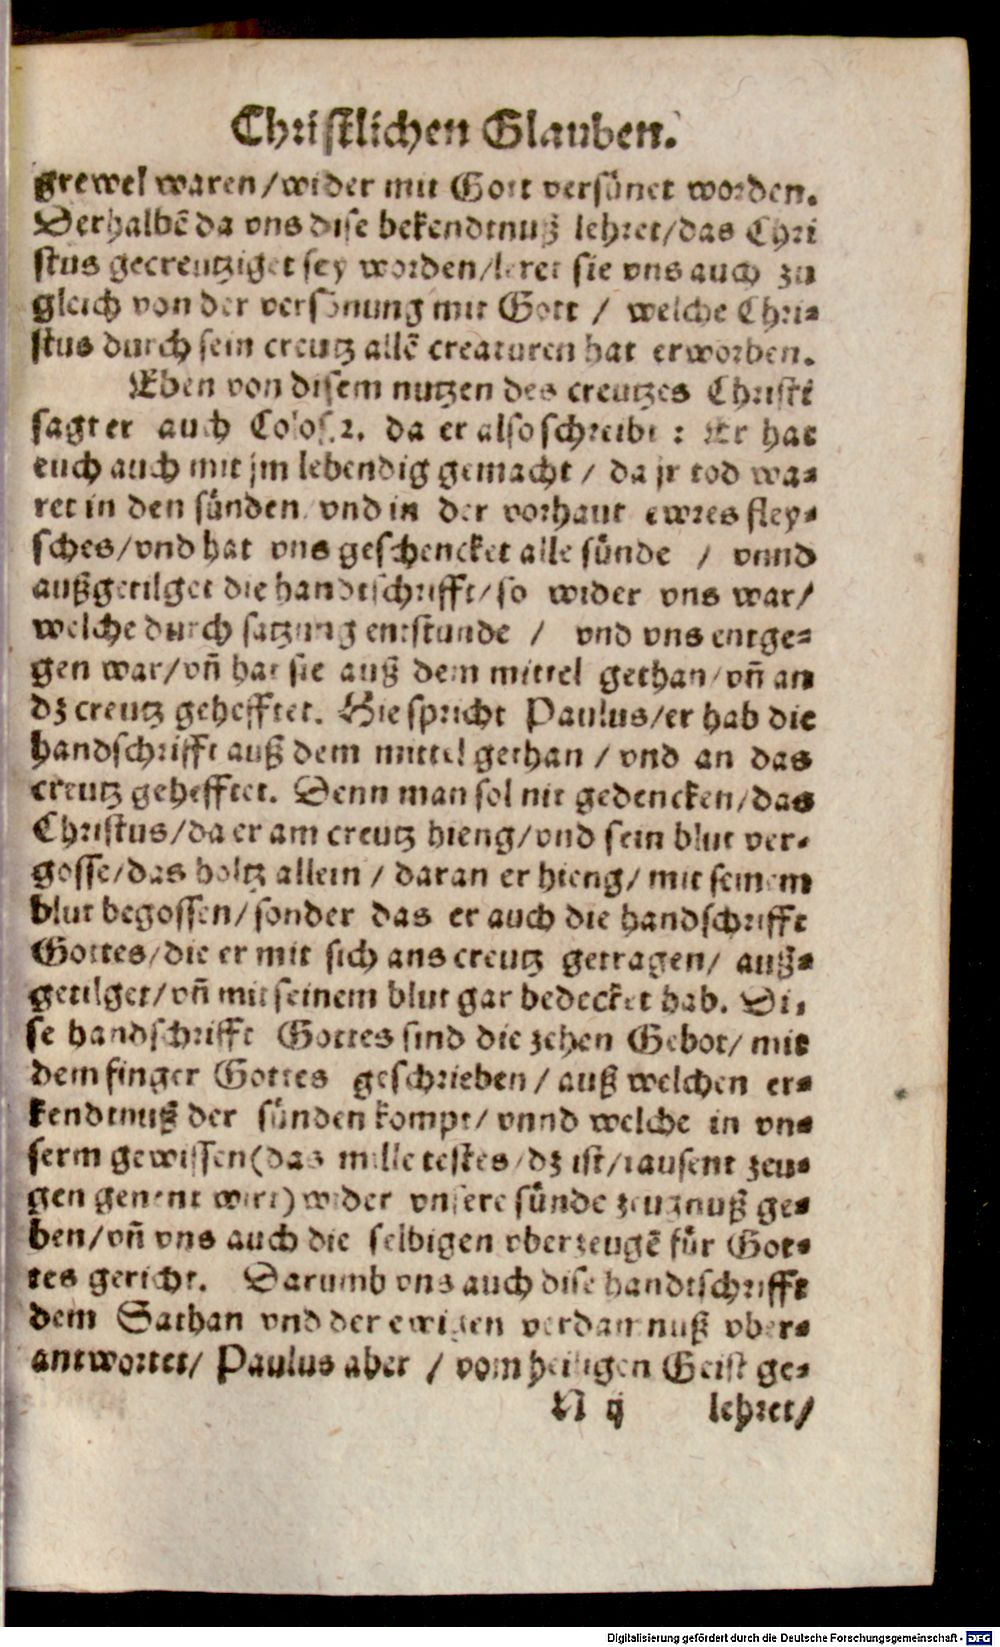 Christlichen Glauben.
grewel waren/wider mit Gott versünet worden.
Derhalbē da vns dise bekendtnuß lehret/das Chri
stus gecreutziget sey worden/leret sie vns auch zu
gleich von der versönung mit Gott / welche Chri-
stus durch sein creutz allē creaturen hat erworben.
Eben von disem nutzen des creutzes Christi
sagt er auch Colos.2. da er also schreibt : Er hat
euch auch mit jm lebendig gemacht / da jr tod wa-
ret in den sünden vnd in der vorhaut ewres fley-
sches/vnd hat vns geschencket alle sünde / vnnd
außgetilget die handtschrifft/so wider vns war/
welche durch satzung entstunde / vnd vns entge-
gen war/vñ hat sie auß dem mittel gethan/vñ an
dz creutz gehefftet. Hie spricht Paulus/er hab die
handschrifft auß dem mittel gethan / vnd an das
creutz gehefftet. Denn man sol nit gedencken/das
Christus/da er am creutz hieng/vnd sein blut ver-
gosse/das holtz allein / daran er hieng/ mit seinem
blut begossen/sonder das er auch die handschrifft
Gottes/die er mit sich ans creutz getragen/ auß-
getilget/vñ mit seinem blut gar bedecket hab. Di-
se handschrifft Gottes sind die zehen Gebot/ mit
dem finger Gottes geschrieben / auß welchen er-
kendtnuß der sünden kompt/ vnnd welche in vn-
serm gewissen(das mille testes/dz ist/tausent zeu-
gen genent wirt)wider vnsere sünde zeugnuß ge-
ben/vñ vns auch die selbigen vberzeugē für Got-
tes gericht. Darumb vns auch dise handtschrifft
dem Sathan vnd der ewigen verdamnuß vber-
antwortet/ Paulus aber / vom heiligen Geist ge-
N ij lehret/
Digitalisierung gefördert durch die Deutsche Forschungsgemeinschaft - DFG